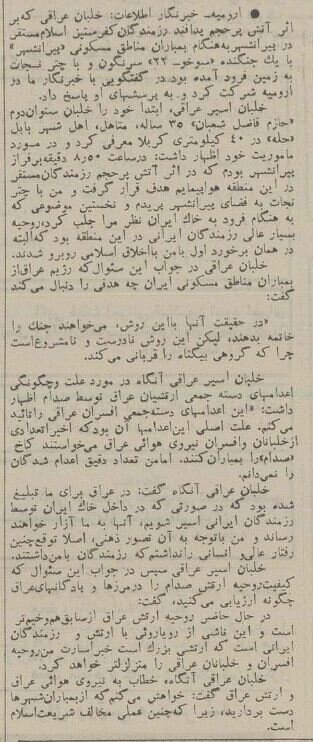 ● ارومیه- خبرنگار اطلاعات: خلبان عراقی که‌بر
اثر آتش پرحجم پدافند رزمندگان کفرستیز اسلام‌مستقر
در پیرانشهر به‌هنگام بمباران مناطق مسکونی «پیرانشهر»
با یك جنگنده «سوخو- ۲۲» سرنگون و با چتر نجات
به زمین فرود آمده بود در گفتگویی با خبرنگار ما در
ارومیه شرکت کرد و به پرسشهای او پاسخ داد.
خلبان اسیر عراقی، ابتدا خود را خلبان ستوان‌دوم
«حازم فاضل شعبان» ۳۵ ساله، متاهل، اهل شهر بابل
«حله» در ۴۰ کیلومتری کربلا معرفی کرد و در مورد
ماموریت خود اظهار داشت: درساعت ۸٫۵۰ دقیقه‌برفراز
پیرانشهر بودم که در اثر آتش پرحجم رزمندگان‌مستقر
در این منطقه هواپیمایم هدف قرار گرفت و من با چتر
نجات به فضای پیرانشهر پریدم و نخستین موضوعی که
به هنگام فرود به خاك ایران نظر مرا جلب کرد،روحیه
بسیار عالی رزمندگان ایرانی در این منطقه بود که‌البته
در همان برخورد اول بامن بااخلاق اسلامی روبرو شدند.
خلبان عراقی در جواب این سئوال‌که رژیم عراق‌از
بمباران مناطق مسکونی ایران چه هدفی را دنبال می‌کند
گفت:
«در حقیقت آنها بااین روش، می‌خواهند جنك را
خاتمه بدهند، لیکن این روش نادرست و نامشروع‌است
چرا که گروهی بیگناه را قربانی می‌کند.
خلبان اسیر عراقی آنگاه در مورد علت وچگونگی
اعدامهای دسته جمعی ارتشیان عراق توسط صدام اظهار
داشت: «این اعدامهای دسته‌جمعی افسران عراقی راتائید
می‌کنم. علت اصلی این‌اعدامها آن بودکه اخیراتعدادی
ازخلبانان وافسران نیروی هوائی عراق می‌خواستند کاخ
«صدام»را بمباران‌کنند. امامن تعداد دقیق اعدام شدگان
را نمی‌دانم.
خلبان عراقی آنگاه گفت: در عراق برای ما تبلیغ
شده بود که در صورتی که در داخل خاك ایران توسط
رزمندگان ایرانی اسیر شویم، آنها به ما آزار خواهند
رساند و من باتوجه به آن تصور ذهنی، اصلا توقع‌چنین
رفتار عالی‌و انسانی رانداشتم‌که رزمندگان بامن‌داشتند.
خلبان اسیر عراقی سپس در جواب این سئوال که
کیفیت‌روحیه ارتش صدام را درمرزها و پادگانهای‌عراق
چگونه ارزیابی می‌کنید، گفت:
در حال حاضر روحیه ارتش عراق ازسابق‌هم‌وخیم‌تر
است و این ناشی از رویارویی با ارتش و رزمندگان
ایرانی است که ارتشی بزرك است خبراسارت من‌روحیه
افسران و خلبانان عراقی را متزلزل‌تر خواهد کرد.
خلبان عراقی آنگاه، خطاب به نیروی هوائی عراق
و ارتش عراق گفت: خواهش می‌کنم‌که ازبمباران‌شهرها
دست بردارید، زیرا که‌چنین عملی مخالف شریعت‌اسلام
است.